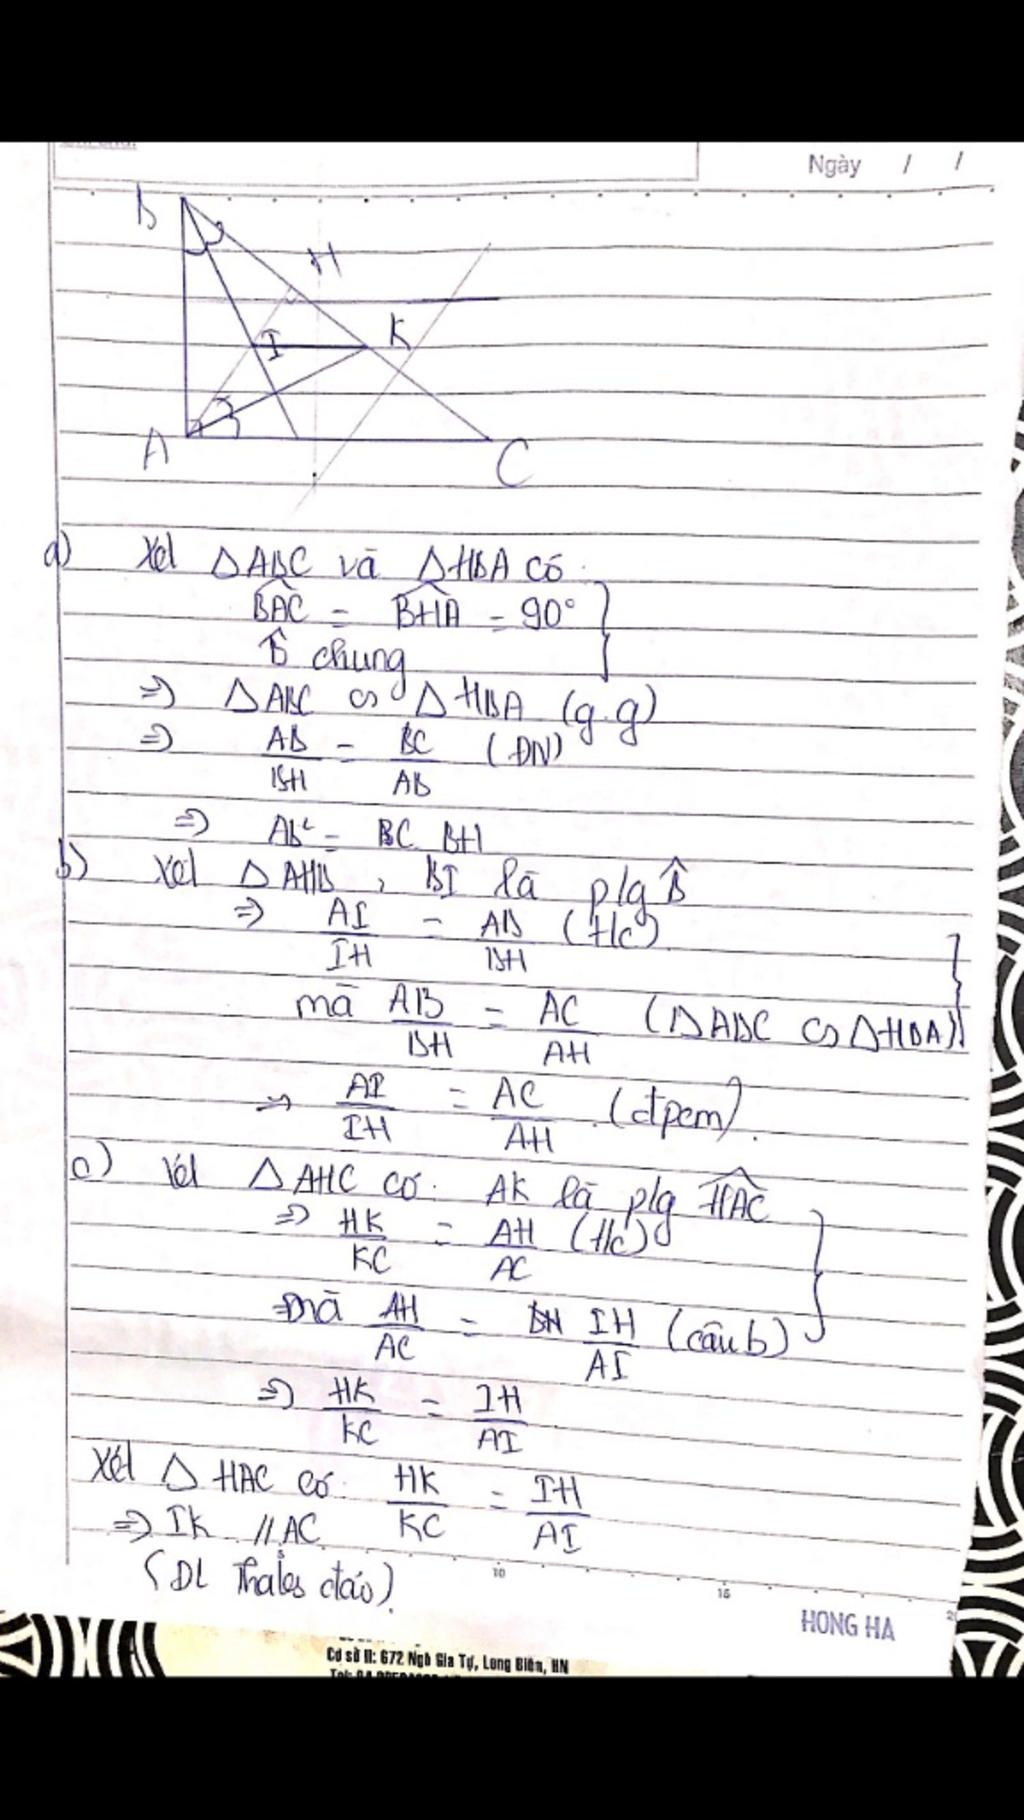 Ngày / /
B
H
I
K
A
C
a) Xét ΔABC và ΔHBA có
BAC = BHA = 90°
B chung
=> ΔABC ∽ ΔHBA (g.g)
=> AB/BH = BC/AB (ĐN)
=> AB² = BC BH
b) Xét ΔAHB, BI là p/g B
=> AI/IH = AB/BH (t/c)
mà AB/BH = AC/AH (ΔABC ∽ ΔHBA)
=> AI/IH = AC/AH (đpcm).
c) Xét ΔAHC có: AK là p/g HAC
=> HK/KC = AH/AC (t/c)
mà AH/AC = IH/AI (câu b)
=> HK/KC = IH/AI
Xét Δ HAC có: HK/KC = IH/AI
=> IK // AC
(ĐL Thales đảo).
5 10 15 20
HONG HA
Cơ sở II: 672 Ngô Gia Tự, Long Biên, HN